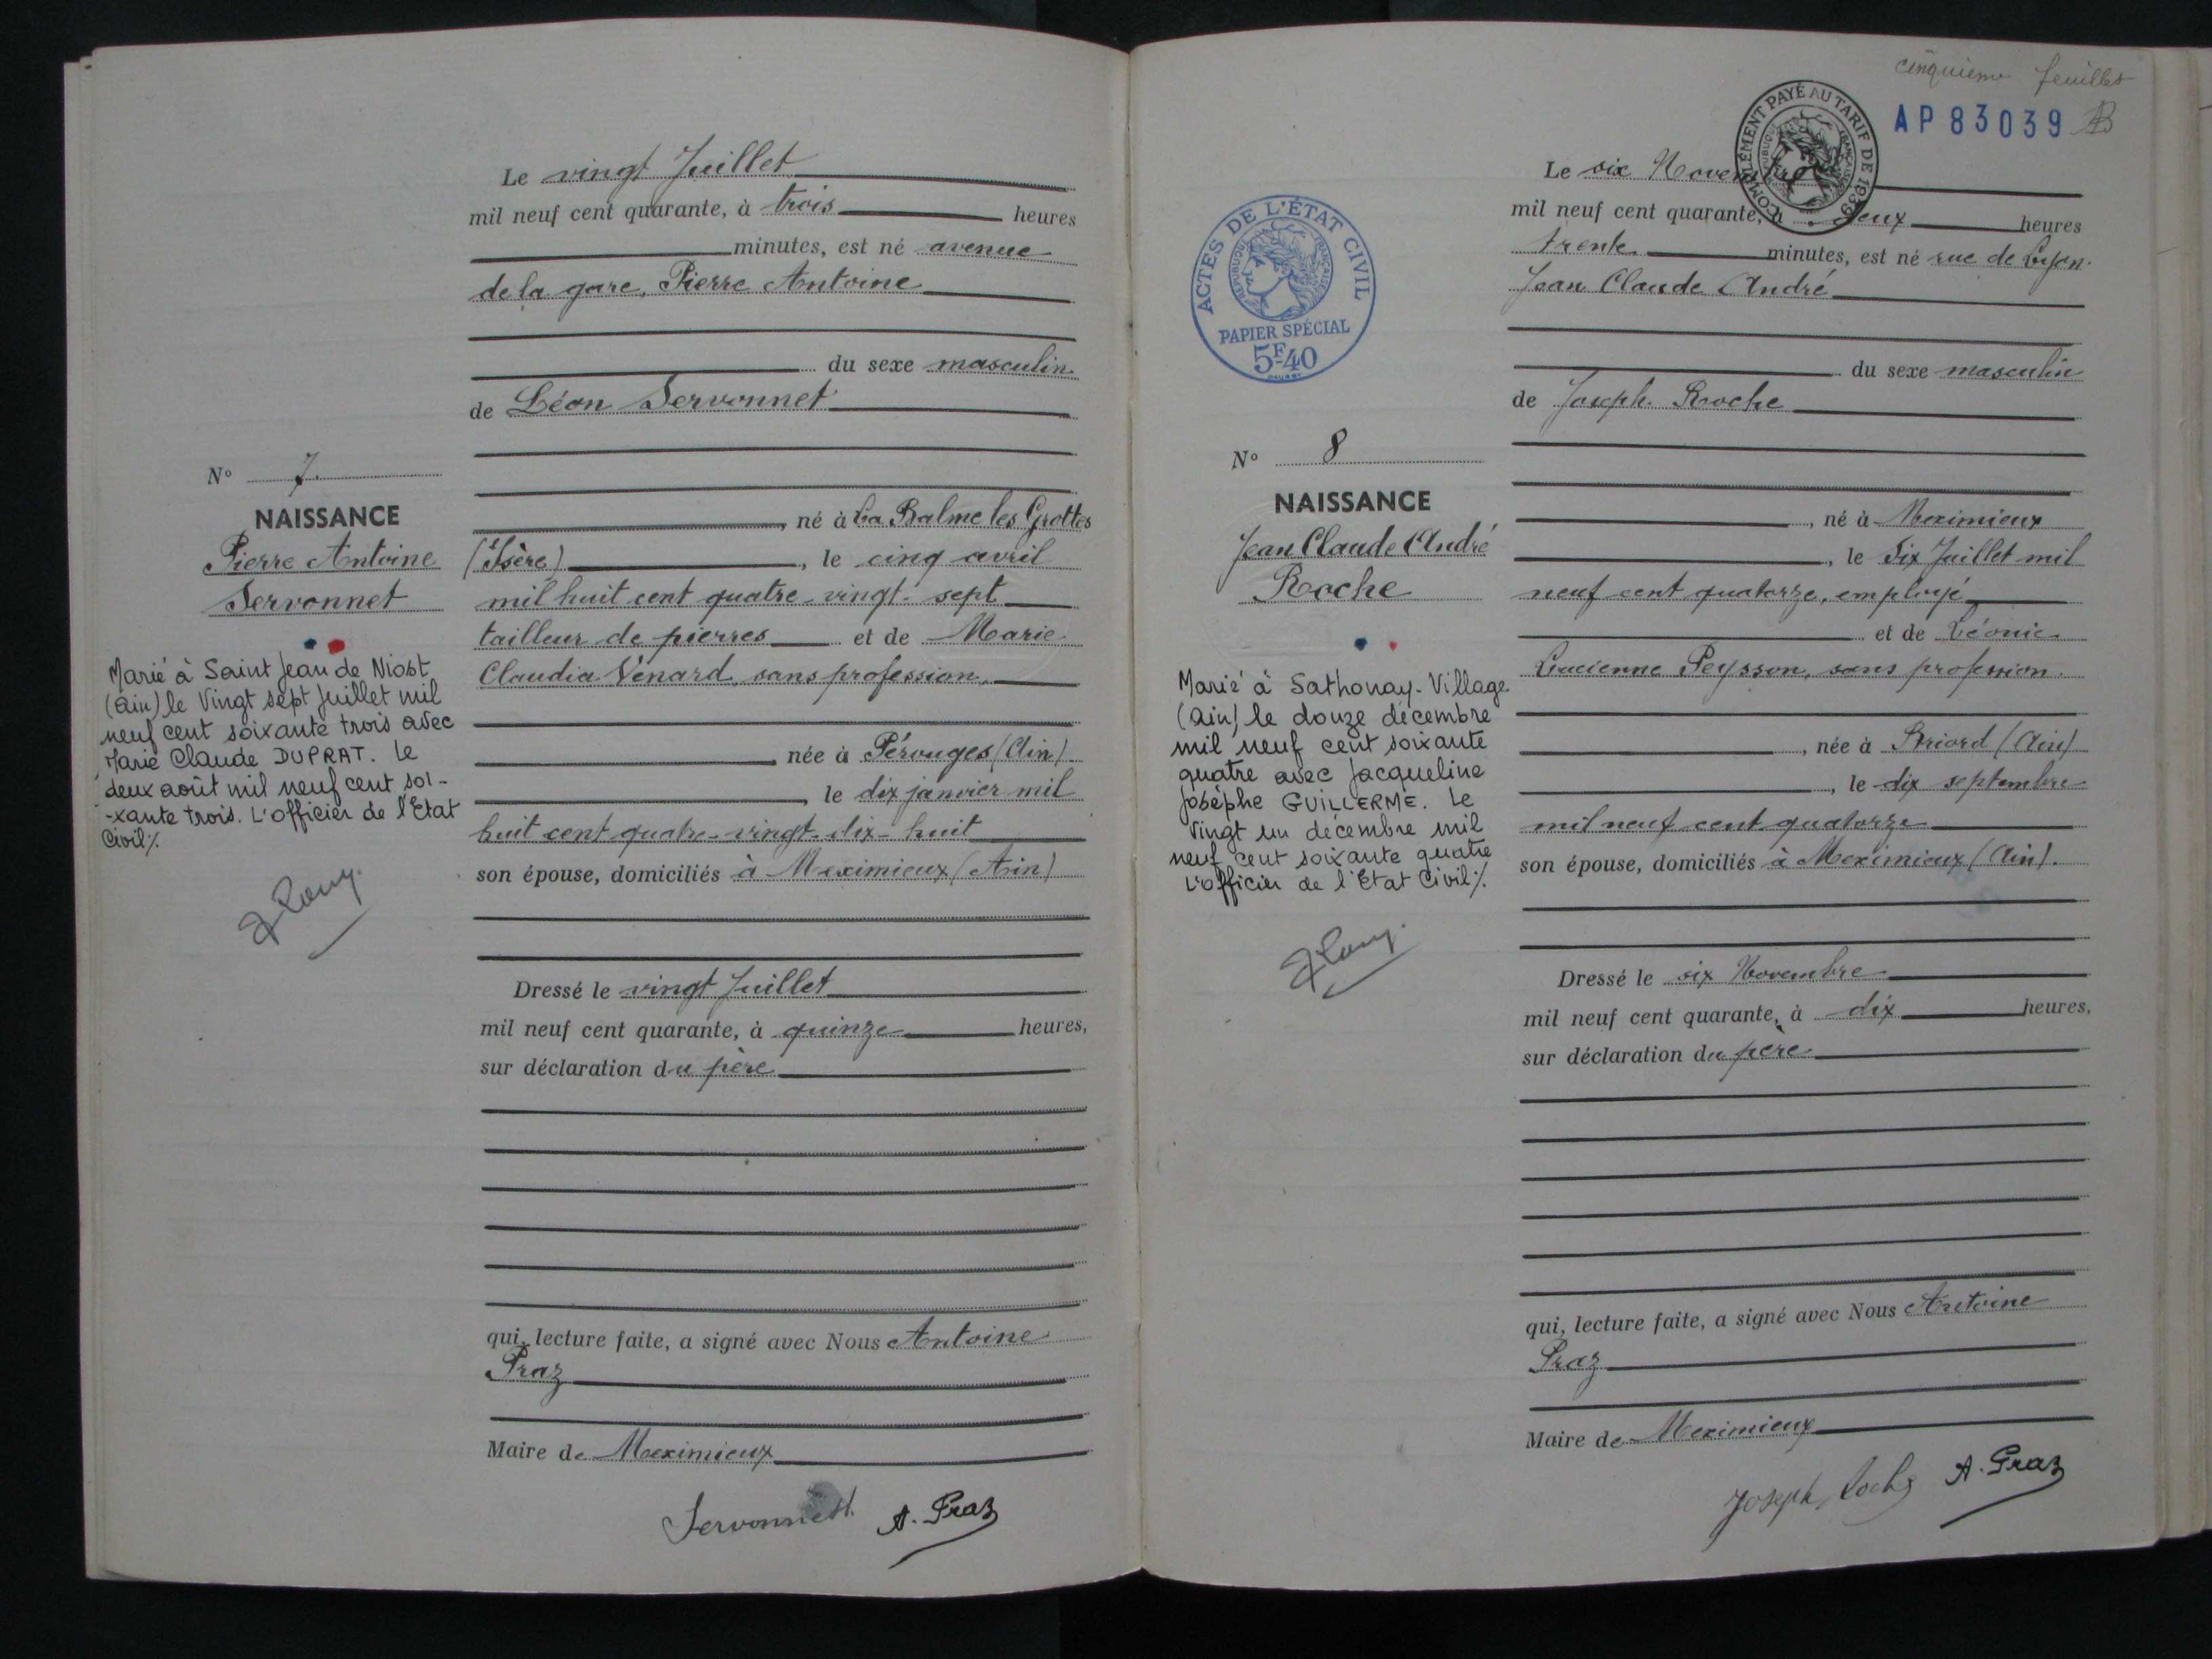 Le vingt Juillet
mil neuf cent quarante, à trois heures
minutes, est né avenue
de la gare, Pierre Antoine
du sexe masculin
de Léon Servonnet
N° 7
NAISSANCE
Pierre Antoine
Servonnet
Marié à Saint Jean de Niost
(Ain) le Vingt sept Juillet mil
neuf cent soixante trois avec
Marie Claude DUPRAT. Le
deux août mil neuf cent soi-
-xante trois. L'officier de l'Etat
Civil ./.
né à La Balme les Grottes
(Isère), le cinq avril
mil huit cent quatre-vingt-sept
tailleur de pierres et de Marie
Claudia Venard, sans profession,
née à Pérouges (Ain)
, le dix janvier mil
huit cent quatre-vingt-dix-huit
son épouse, domiciliés à Meximieux (Ain)
Dressé le vingt Juillet
mil neuf cent quarante, à quinze heures,
sur déclaration du père
qui, lecture faite, a signé avec Nous Antoine
Praz
Maire de Meximieux
Servonnet A. Praz
cinquième feuillet
AP 83039
COMPLÉMENT PAYÉ AU TARIF DE 1939
RÉPUBLIQUE FRANÇAISE
Le six Novembre
mil neuf cent quarante, à deux heures
trente minutes, est né rue de Lyon
Jean Claude André
du sexe masculin
de Joseph Roche
ACTES DE L'ÉTAT CIVIL
RÉPUBLIQUE FRANÇAISE
PAPIER SPÉCIAL
5F40
N° 8
NAISSANCE
Jean Claude André
Roche
Marié à Sathonay-Village
(Ain) le douze décembre
mil neuf cent soixante
quatre avec Jacqueline
Josèphe GUILLERME. Le
Vingt un décembre mil
neuf cent soixante quatre
L'officier de l'Etat Civil ./.
, né à Meximieux
, le Six Juillet mil
neuf cent quatorze, employé
et de Léonie
Lucienne Peysson, sans profession.
, née à Briord (Ain)
, le dix septembre
mil neuf cent quatorze
son épouse, domiciliés à Meximieux (Ain).
Dressé le six Novembre
mil neuf cent quarante, à dix heures,
sur déclaration du père
qui, lecture faite, a signé avec Nous Antoine
Praz
Maire de Meximieux
Joseph Roche A. Praz